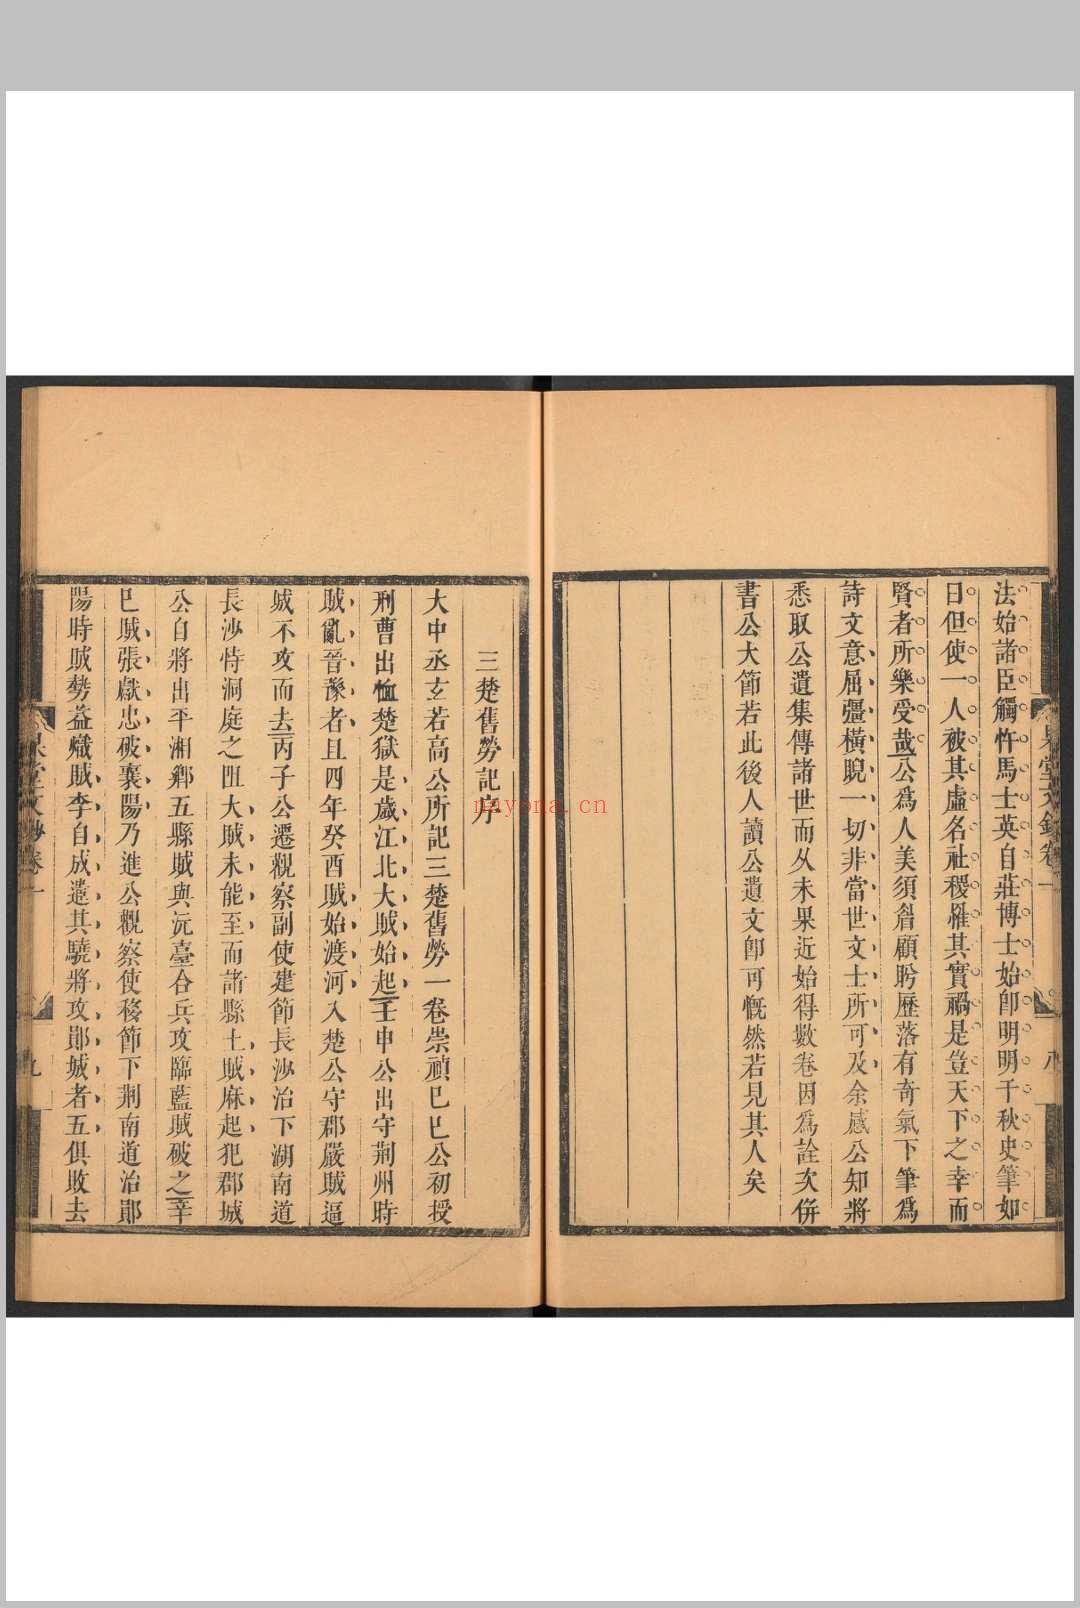 法始諸臣觸忤馬士英自莊博士始卽明明千秋史筆如
日但使一人被其虛名社稷罹其實禍是豈天下之幸而
賢者所樂受哉公爲人美須眉顧盻歷落有奇氣下筆爲
詩文意屈彊橫睨一切非當世文士所可及余感公知將
悉取公遺集傳諸世而从未果近始得數卷因爲詮次倂
書公大節若此後人讀公遺文卽可慨然若見其人矣
三楚舊勞記序
大中丞玄若高公所記三楚舊勞一卷崇禎巳巳公初授
刑曹出恤楚獄是歲江北大賊始起壬申公出守荆州時
賊亂晉豫者且四年癸酉賊始渡河入楚公守郡嚴賊逼
城不攻而去丙子公遷觀察副使建節長沙治下湖南道
長沙恃洞庭之阻大賊未能至而諸縣土賊麻起犯郡城
公自將出平湘鄕五縣賊與沅臺合兵攻臨藍賊破之辛
巳賊張獻忠破襄陽乃進公觀察使移節下荆南道治鄖
陽時賊勢益熾賊李自成遣其驍將攻鄖城者五俱敗去
杲堂文鈔卷一
八
九
mayona.cn